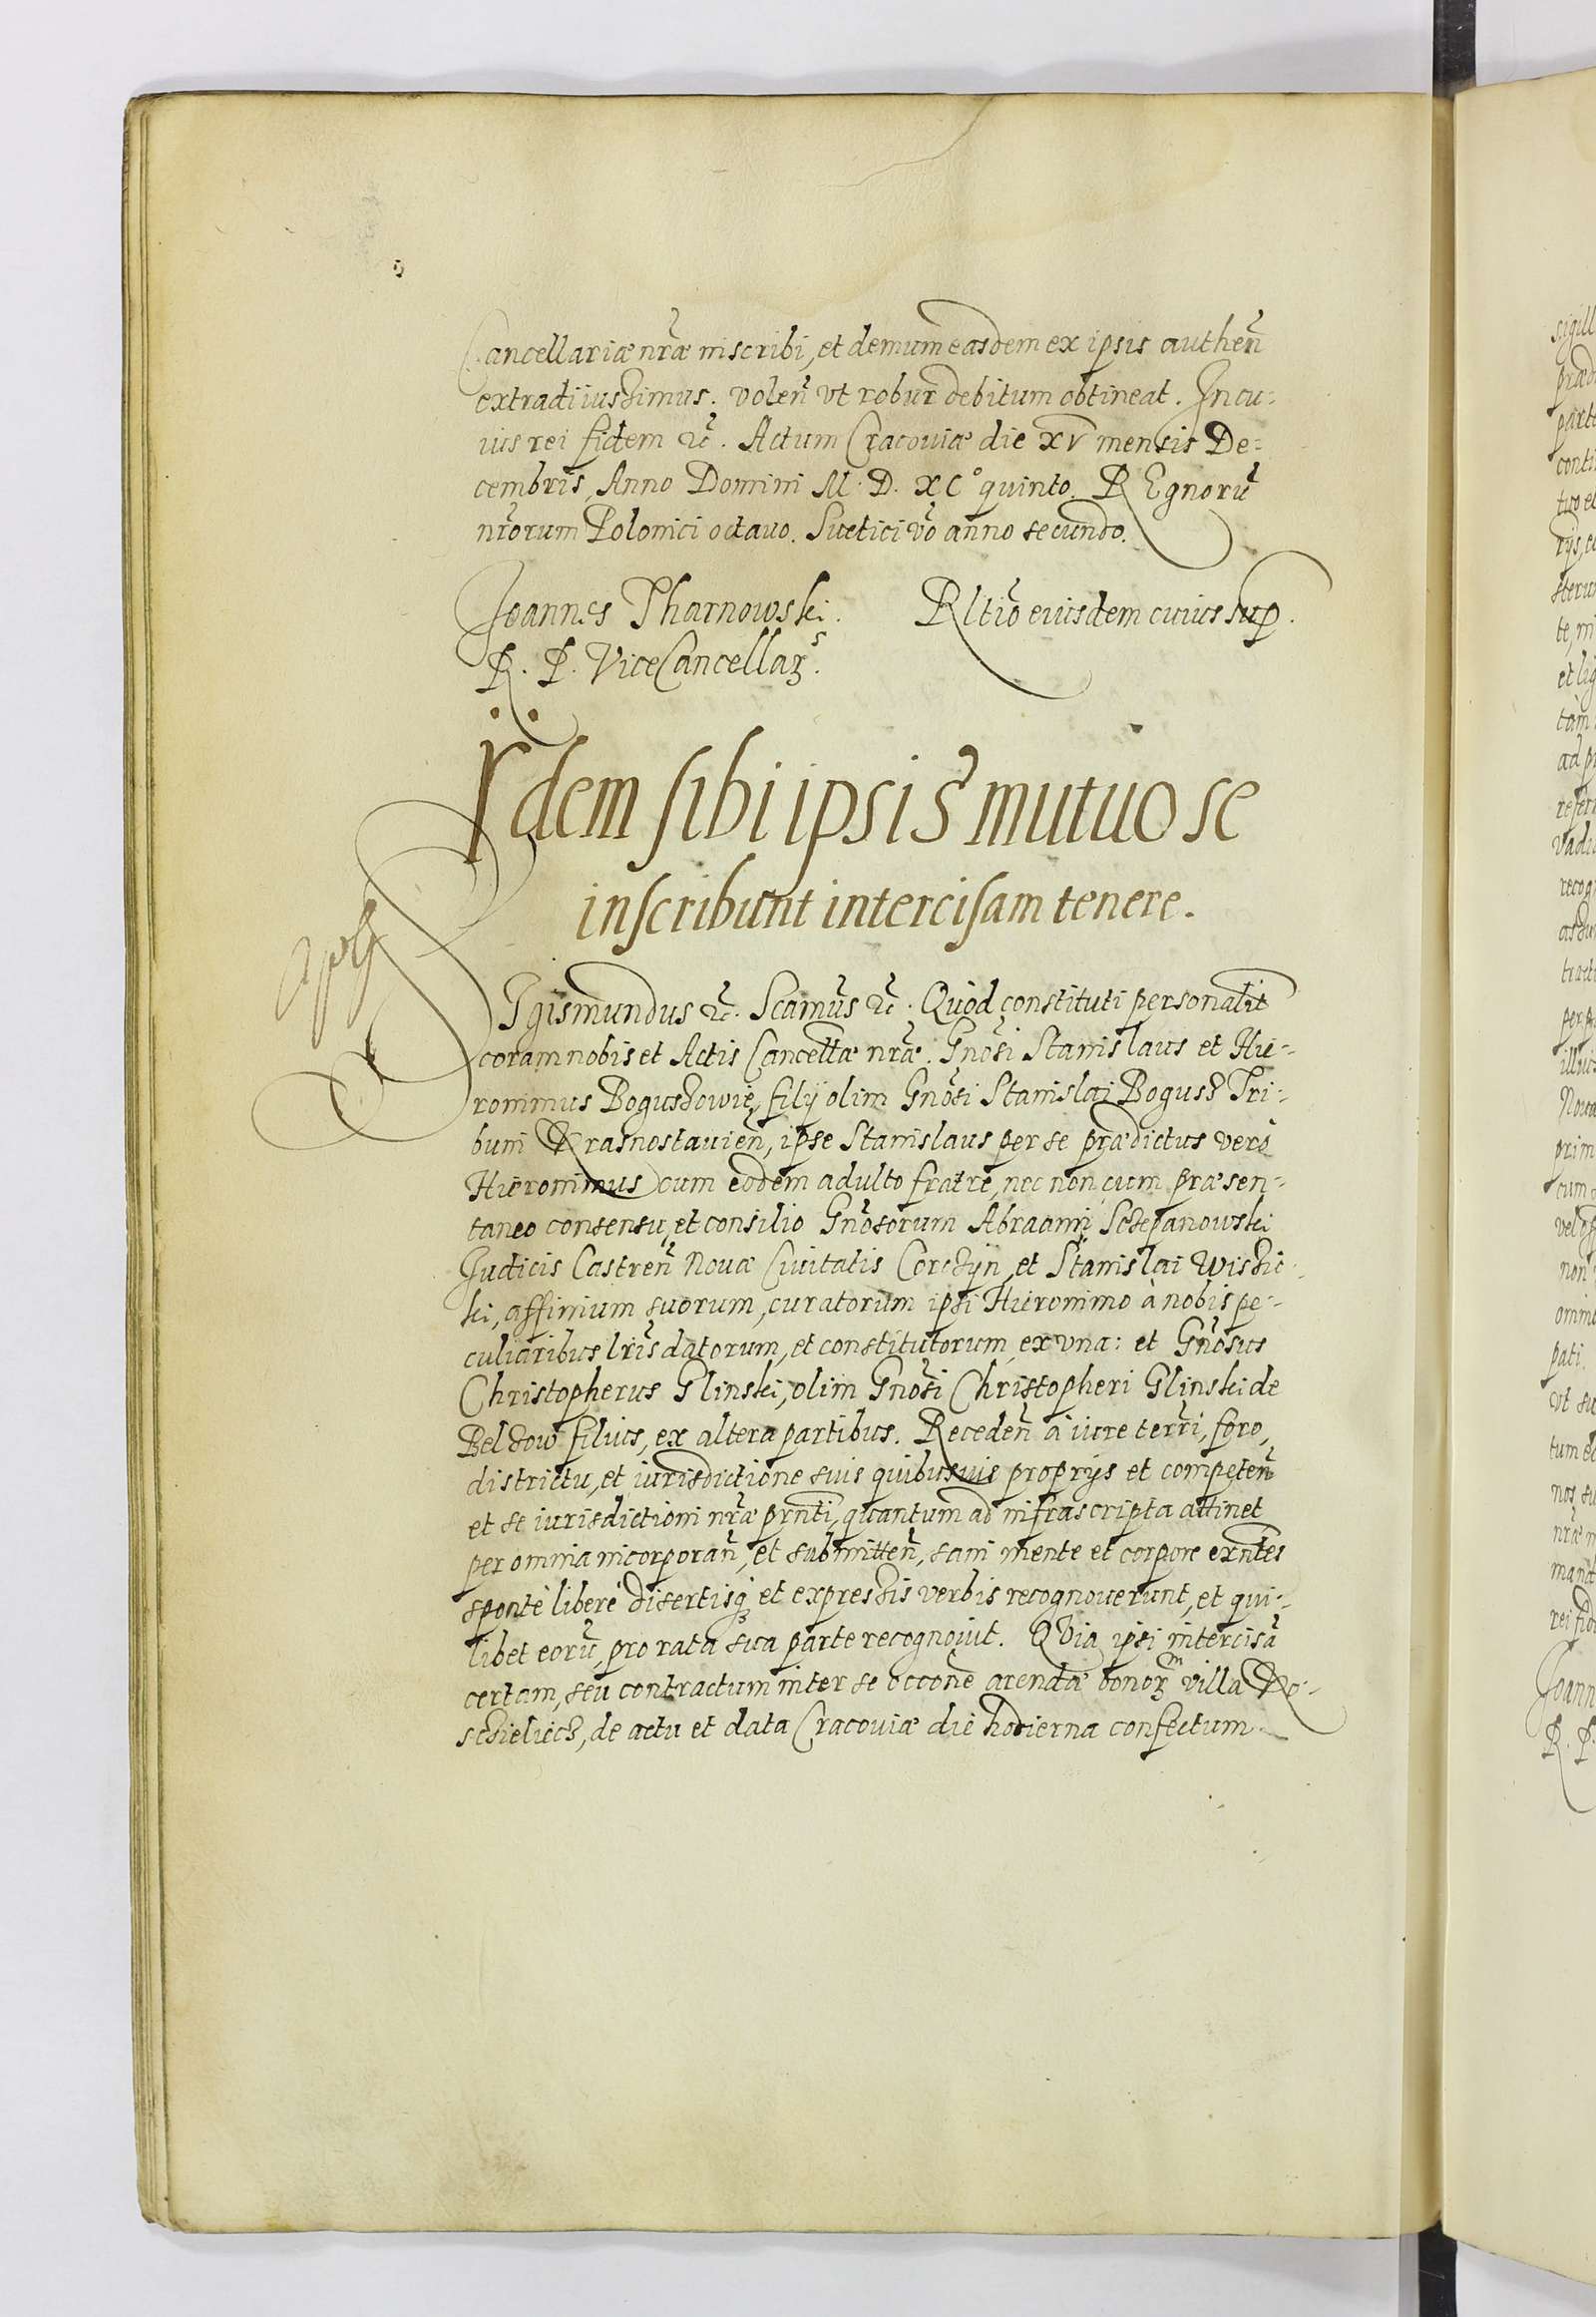 Cancellariæ nr̃æ inscribi, et demum easdem ex ipsis authen̄
extradi iussimus. volen̄ vt robur debitum obtineat. In cu-
ius rei fidem &c̄. Actum Cracoviæ die XV mensis De-
cembris, Anno Domini M. D. XC° quinto. REgnorū
nr̃orum Polonici octauo. Suetici v̄o anno secundo.
Joannes Tharnowski. Rltio eiusdem cuius sup.
R. P. ViceCancellarꝫ.
Idem sibi ipsis mutuo se
inscribunt intercisam tenere.
SIgismundus &c̄. Scamus̃ &c̄. Quod constituti personalit̃
coram nobis et Actis Cancellæ nr̃æ. Gnōsi Stanislaus et Hie-
ronimus Boguszowie, filij olim Gnōsi Stanislai Bogusz Tri-
buni Krasnostauien̄, ipse Stanislaus per se prædictus verò
Hieronimus cum eodem adulto fratre, nec non cum præsen-
taneo consensu, et consilio Gnōsorum Abraami Sczepanowski
Judicis Castren̄ Nouæ Ciuitatis Corczÿn, et Stanislai Wiszic-
ki, affinium suorum, curatorum ipsi Hieronimo à nobis pe-
culiaribus lr̃is datorum, et constitutorum, ex vna: et Gnōsus
Christopherus Glinski, olim Gnōsi Christopheri Glinski de
Belzow filius, ex altera partibus. Receden̄ à iure terr̃i, foro,
districtu, et iurisdictione suis quibusuis proprijs et competen̄
et se iurisdictioni nr̃æ prn̄ti, quantum ad infrascripta attinet
per omnia incorporan̄, et submitten̄, sani mente et corpore exn̄tes
spontè liberè disertisqꝫ et expressis verbis recognouerunt, et qui-
libet eorū, pro rata sua parte recognouit. QVia ipsi intercisā
certam, seu contractum inter se occōne arendæ bonorꝫ villa Ko-
scieliecz, de actu et data Cracoviæ die hodierna confectum